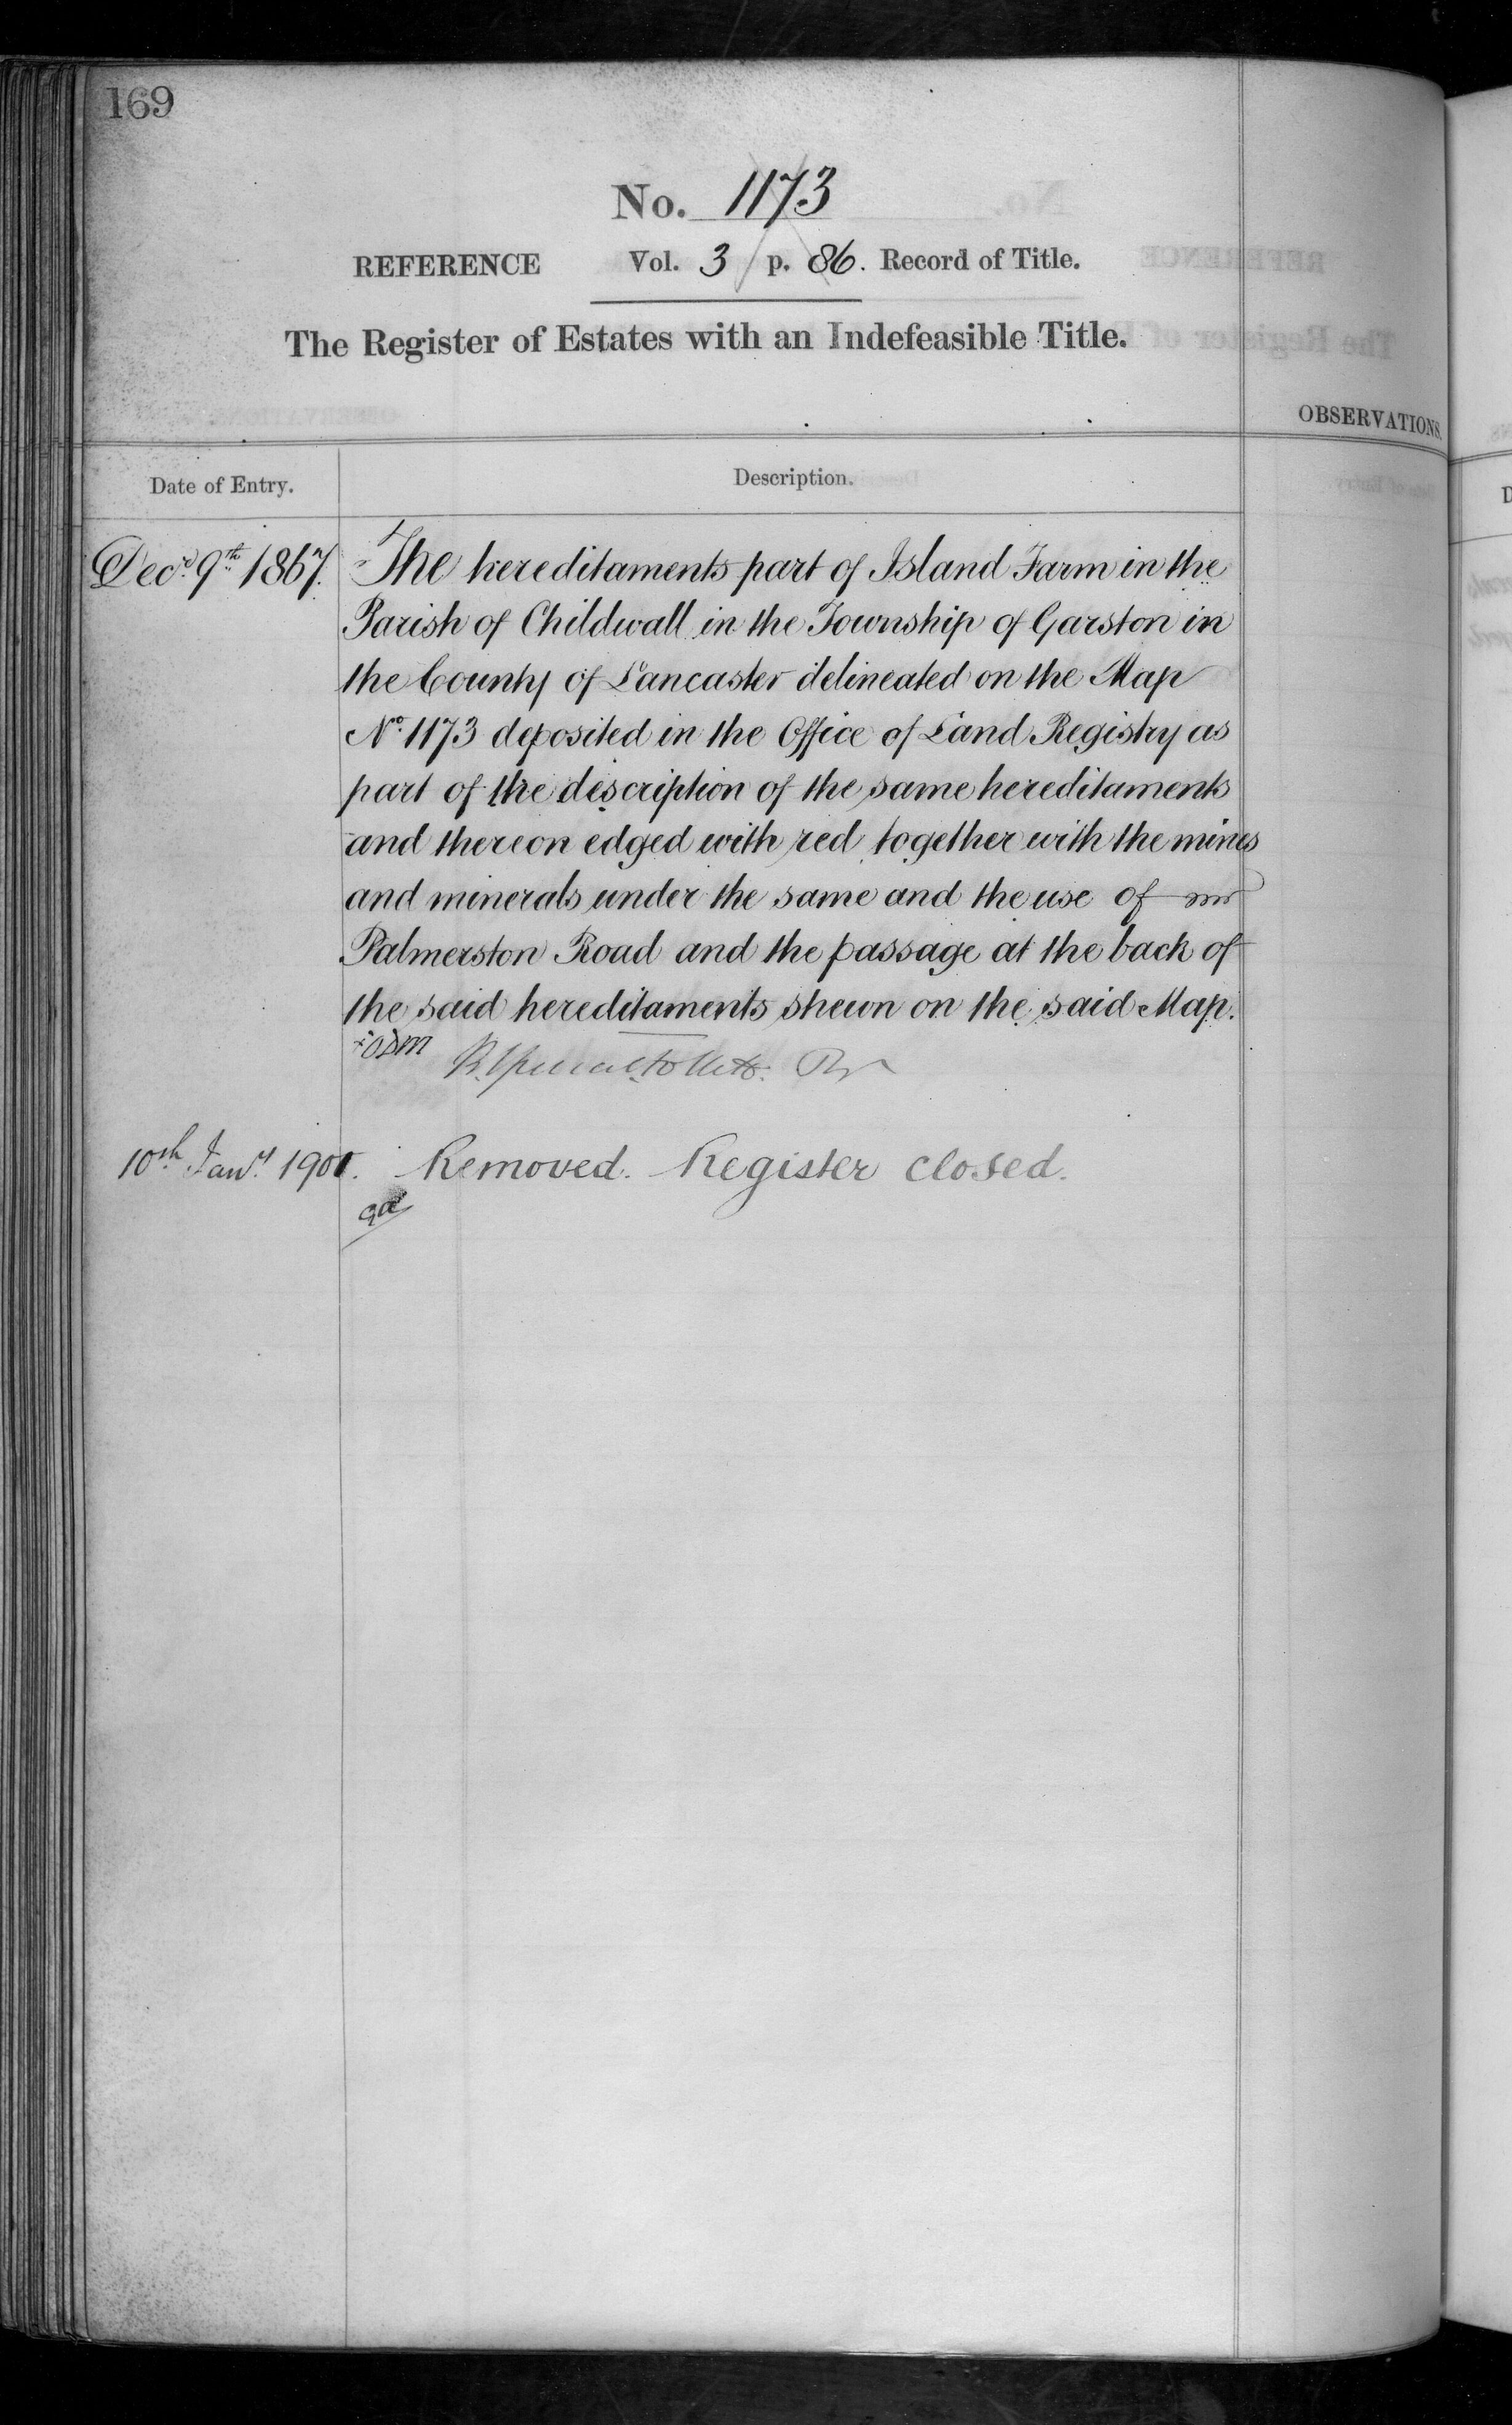 169
No. 1173
REFERENCE Vol. 3 p. 86. Record of Title.
The Register of Estates with an Indefeasible Title.
OBSERVATIONS.
Date of Entry. Description.
Decr. 9th 1867. The hereditaments part of Island Farm in the
Parish of Childwall in the Township of Garston in
the County of Lancaster delineated on the Map
No. 1173 deposited in the Office of Land Registry as
part of the description of the same hereditaments
and thereon edged with red together with the mines
and minerals under the same and the use of
Palmerston Road and the passage at the back of
the said hereditaments shewn on the said Map.
10th Jany. 1900. Removed. Register closed.